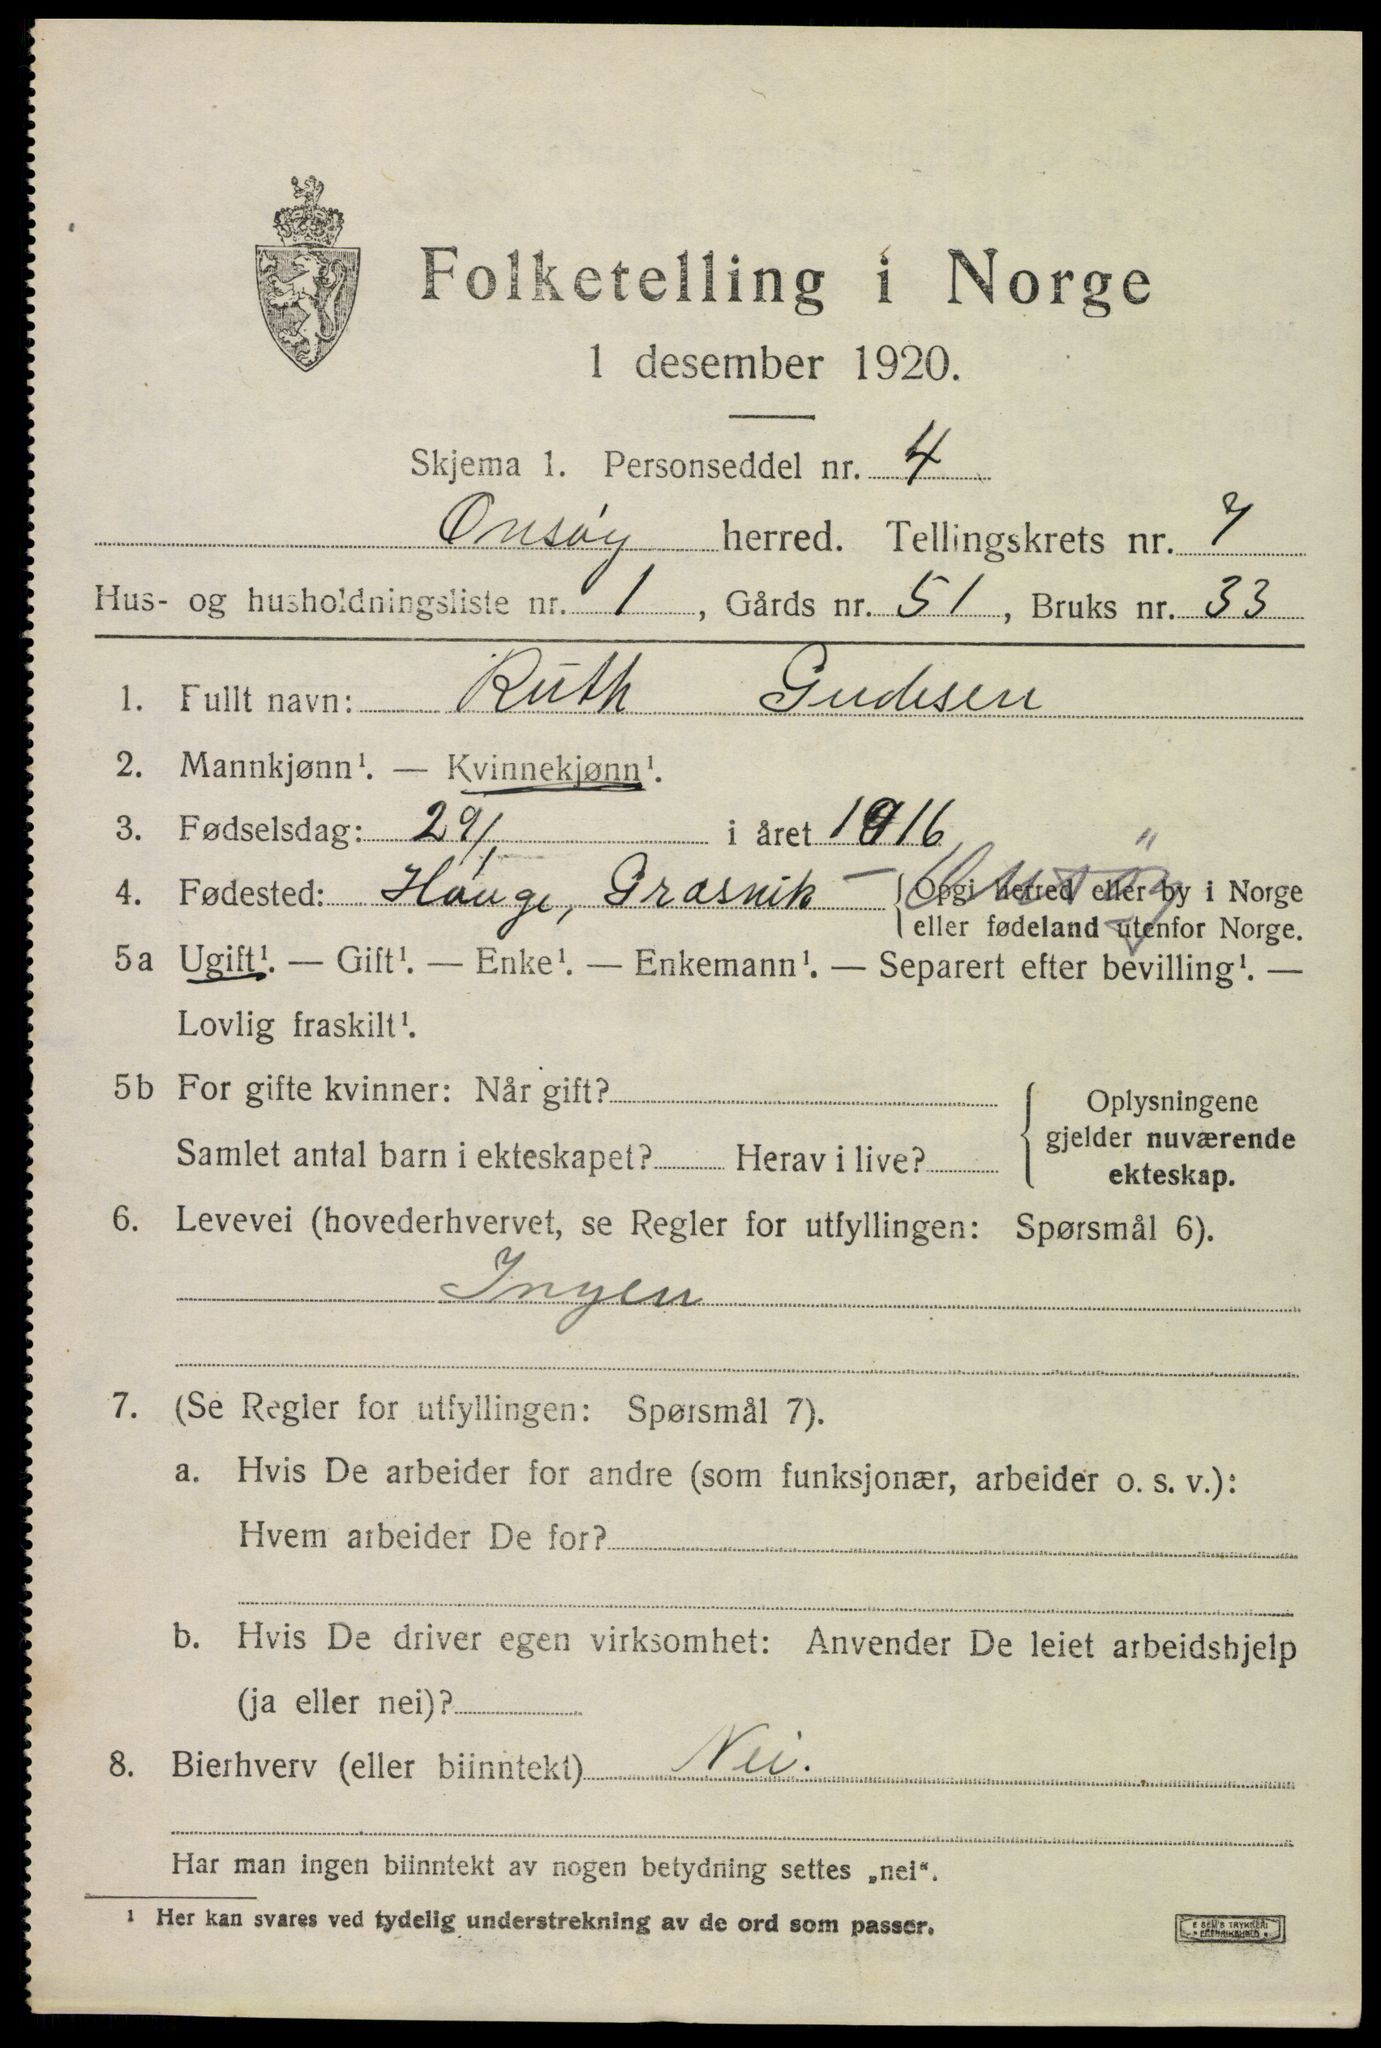 Folketelling i Norge
1 desember 1920.
Skjema 1. Personseddel nr. 4
Onsøy herred. Tellingskrets nr. 7
Hus- og husholdningsliste nr. 1, Gårds nr. 51, Bruks nr. 33
1. Fullt navn: Ruth Gudesen
2. Mannkjønn¹. — Kvinnekjønn¹.
3. Fødselsdag: 29/1 i året 1916
4. Fødested: Hauge, Græsvik — Onsöy { Opgi herred eller by i Norge
eller fødeland utenfor Norge.
5a Ugift¹. — Gift¹. — Enke¹. — Enkemann¹. — Separert efter bevilling¹. —
Lovlig fraskilt¹.
5b For gifte kvinner: Når gift?
Samlet antal barn i ekteskapet? Herav i live?
{ Oplysningene
gjelder nuværende
ekteskap.
6. Levevei (hovederhvervet, se Regler for utfyllingen: Spørsmål 6).
Ingen
7. (Se Regler for utfyllingen: Spørsmål 7).
a. Hvis De arbeider for andre (som funksjonær, arbeider o. s. v.):
Hvem arbeider De for?
b. Hvis De driver egen virksomhet: Anvender De leiet arbeidshjelp
(ja eller nei)?
8. Bierhverv (eller biinntekt) Nei.
Har man ingen biinntekt av nogen betydning settes „nei“.
¹ Her kan svares ved tydelig understrekning av de ord som passer.